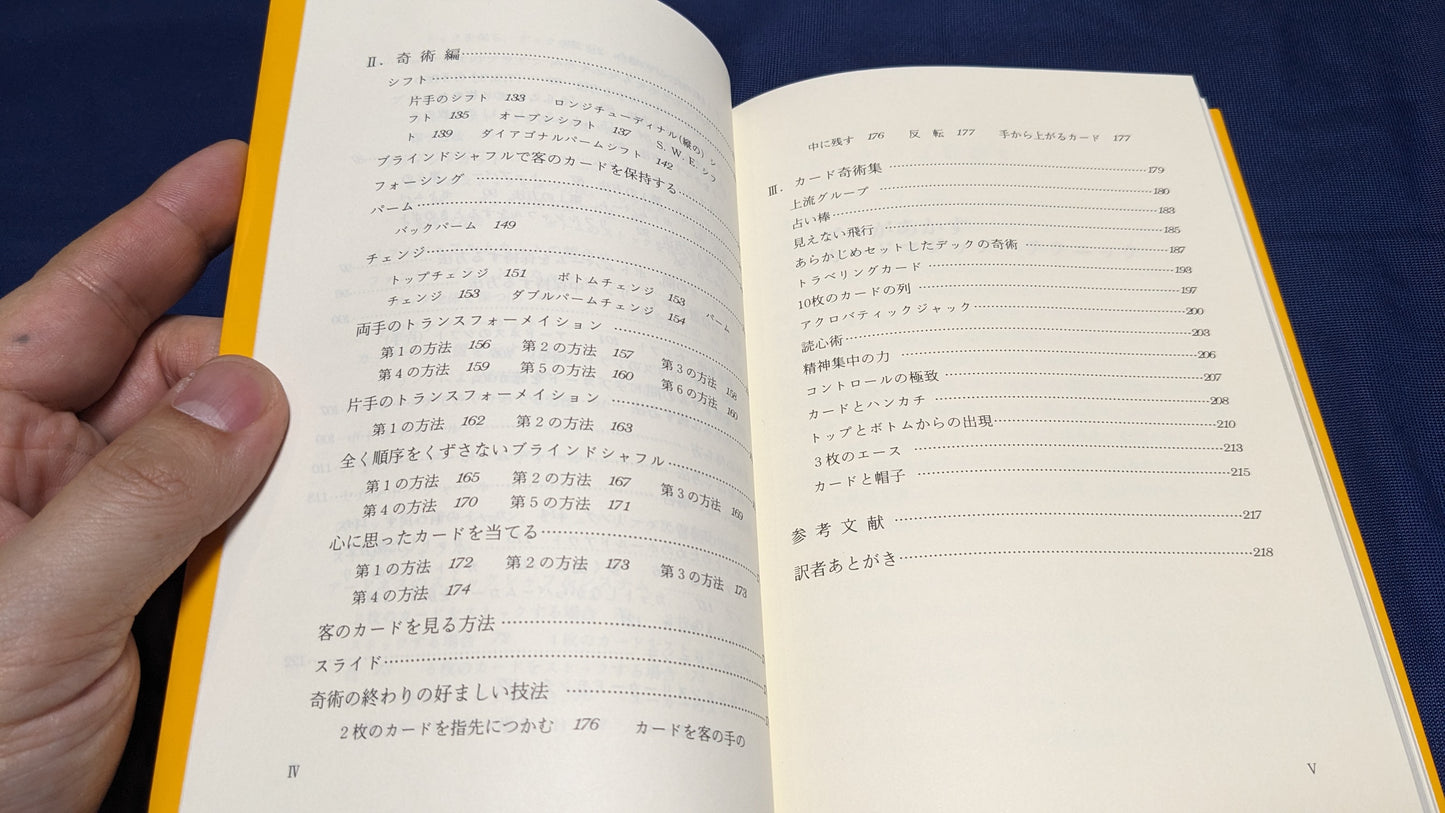 Ⅱ. 奇術編
シフト
片手のシフト 133 ロンジチューディナル(縦の) シ
フト 135 オープンシフト 137 S. W. E. シフ
ト 139 ダイアゴナルパームシフト 142
ブラインドシャフルで客のカードを保持する
フォーシング
パーム
バックパーム 149
チェンジ
トップチェンジ 151 ボトムチェンジ 153 パーム
チェンジ 153 ダブルパームチェンジ 154
両手のトランスフォーメイション
第1の方法 156 第2の方法 157 第3の方法 158
第4の方法 159 第5の方法 160 第6の方法 160
片手のトランスフォーメイション
第1の方法 162 第2の方法 163
全く順序をくずさないブラインドシャフル
第1の方法 165 第2の方法 167 第3の方法 169
第4の方法 170 第5の方法 171
心に思ったカードを当てる
第1の方法 172 第2の方法 173 第3の方法 173
第4の方法 174
客のカードを見る方法
スライド
奇術の終わりの好ましい技法
2枚のカードを指先につかむ 176 カードを客の手の
Ⅳ
中に残す 176 反転 177 手から上がるカード 177
Ⅲ. カード奇術集 179
上流グループ 180
占い棒 183
見えない飛行 185
あらかじめセットしたデックの奇術 187
トラベリングカード 193
10枚のカードの列 197
アクロバティックジャック 200
読心術 203
精神集中の力 206
コントロールの極致 207
カードとハンカチ 208
トップとボトムからの出現 210
3枚のエース 213
カードと帽子 215
参考文献 217
訳者あとがき 218
Ⅴ